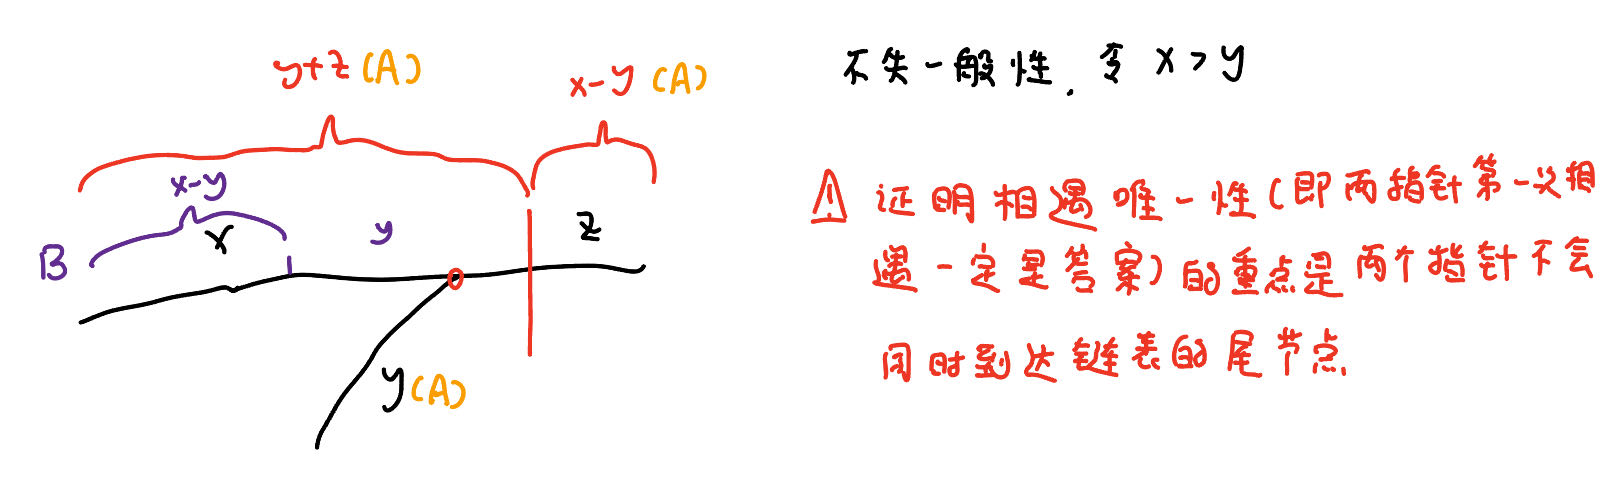 y+z (A)
x-y (A)
x-y
x
y
z
B
y (A)
不失一般性. 令 x > y
⚠ 证明相遇唯一性(即两指针第一次相
遇一定是答案)的重点是两个指针不会
同时到达链表的尾节点.